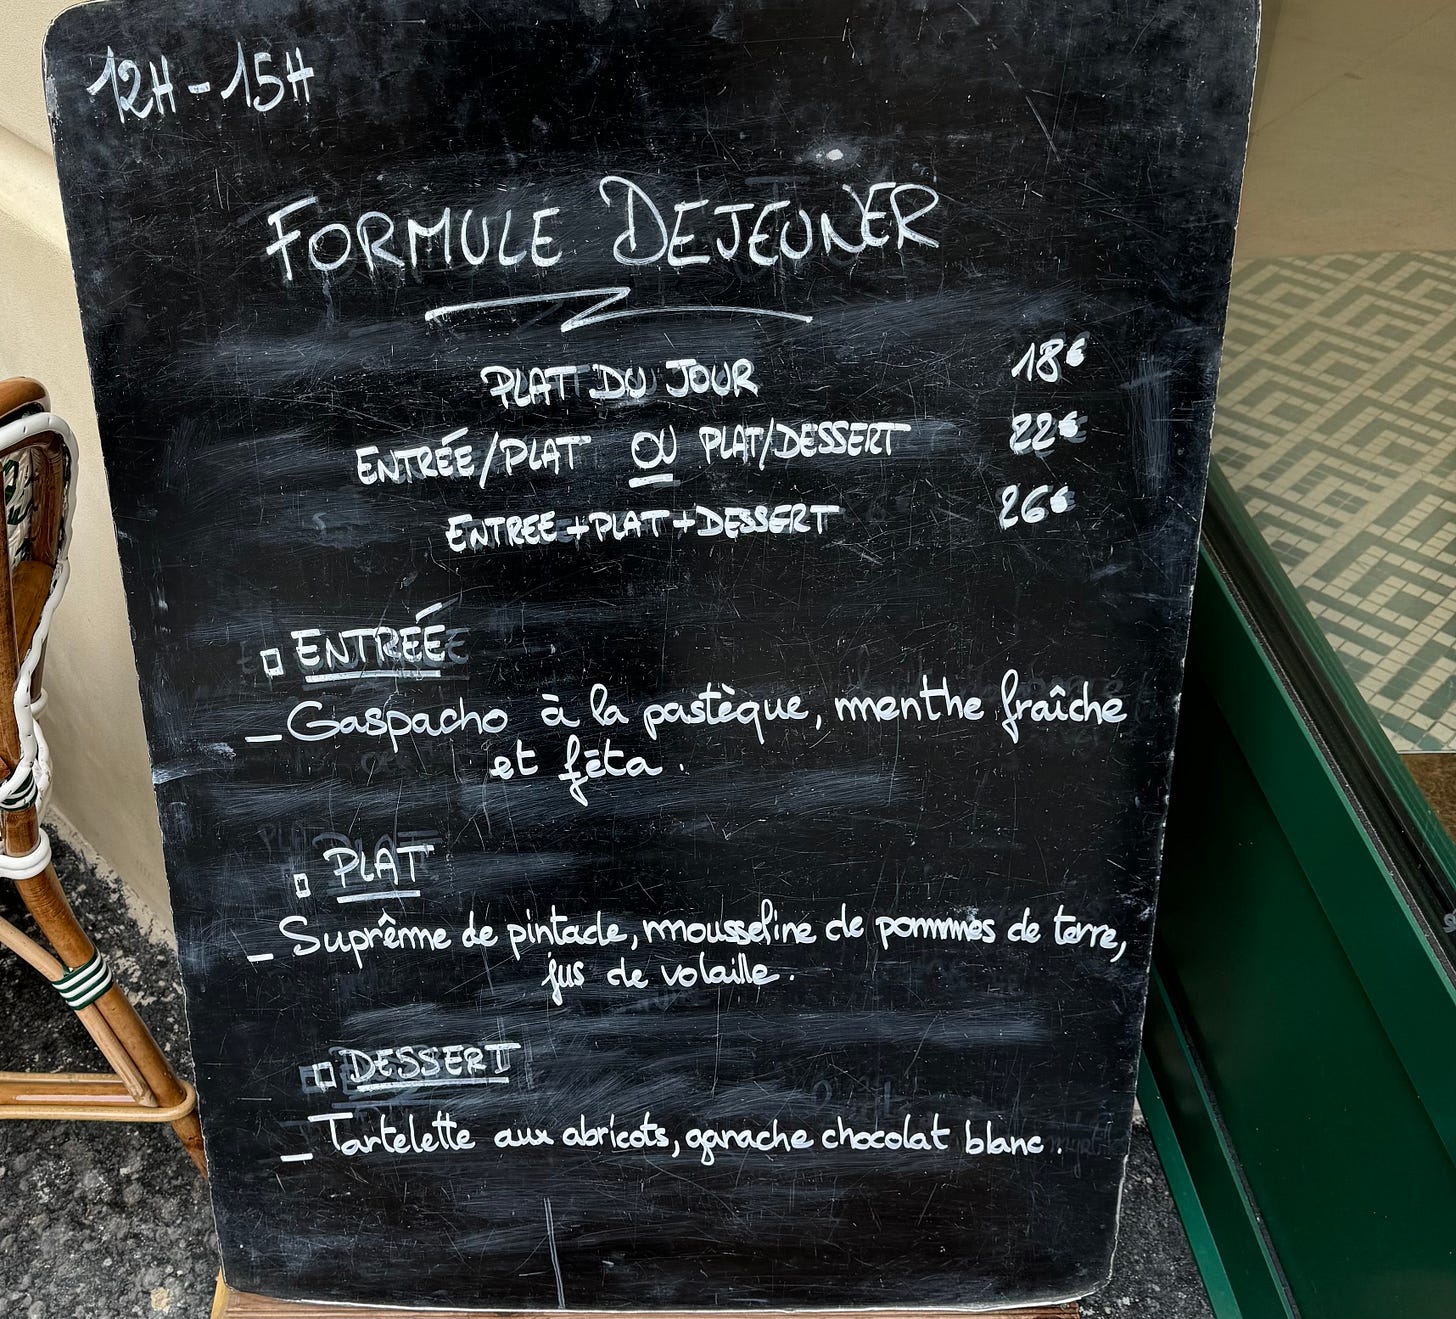 12H-15H
FORMULE DEJEUNER
PLAT DU JOUR 18€
ENTRÉE/PLAT OU PLAT/DESSERT 22€
ENTREE+PLAT+DESSERT 26€
ENTREÉ
_Gaspacho à la pastèque, menthe fraîche
et fêta.
PLAT
_ Suprême de pintade, mousseline de pommes de terre,
jus de volaille.
DESSERT
_ Tartelette aux abricots, ganache chocolat blanc.